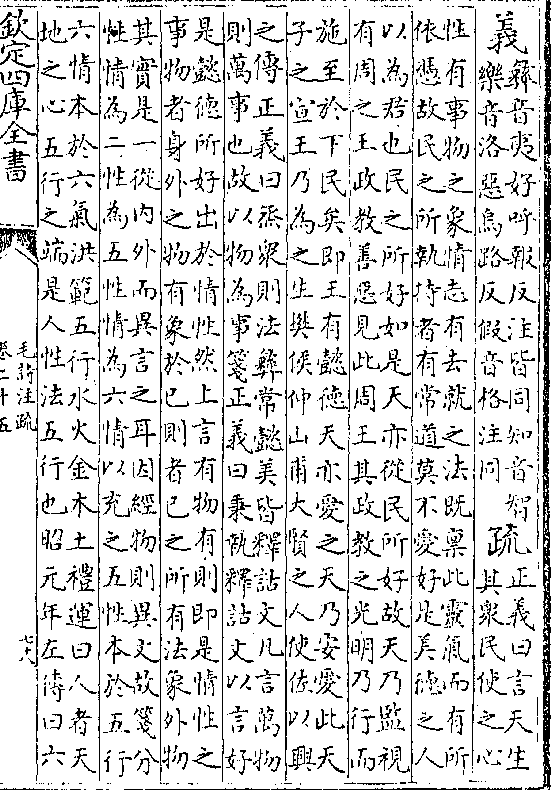 義 彞音夷好呼報反注皆同知音智
樂音洛惡烏路反假音格注同
疏 正義曰言天生
其衆民使之心
性有事物之象情志有去就之法既稟此靈氣而有所
依憑故民之所執持者有常道莫不愛好是美德之人
以為君也民之所好如是天亦從民所好故天乃監視
有周之王政教善惡見此周王其政教之光明乃行而
施至於下民矣即王有懿德天亦愛之天乃安愛此天
子之宣王乃為之生樊侯仲山甫大賢之人使佐以興
之傳正義曰烝衆則法彞常懿美皆釋詁文凡言萬物
則萬事也故以物為事箋正義曰秉執釋詁文以言好
是懿德所好出於情性然上言有物有則即是情性之
事物者身外之物有象於已則者已之所有法象外物
其實是一從内外而異言之耳因經物則異文故箋分
性情為二性為五性情為六情以充之五性本於五行
六情本於六氣洪範五行水火金木土禮運曰人者天
地之心五行之端是人性法五行也昭元年左傳曰六
欽定四庫全書
毛詩注疏
卷二十五